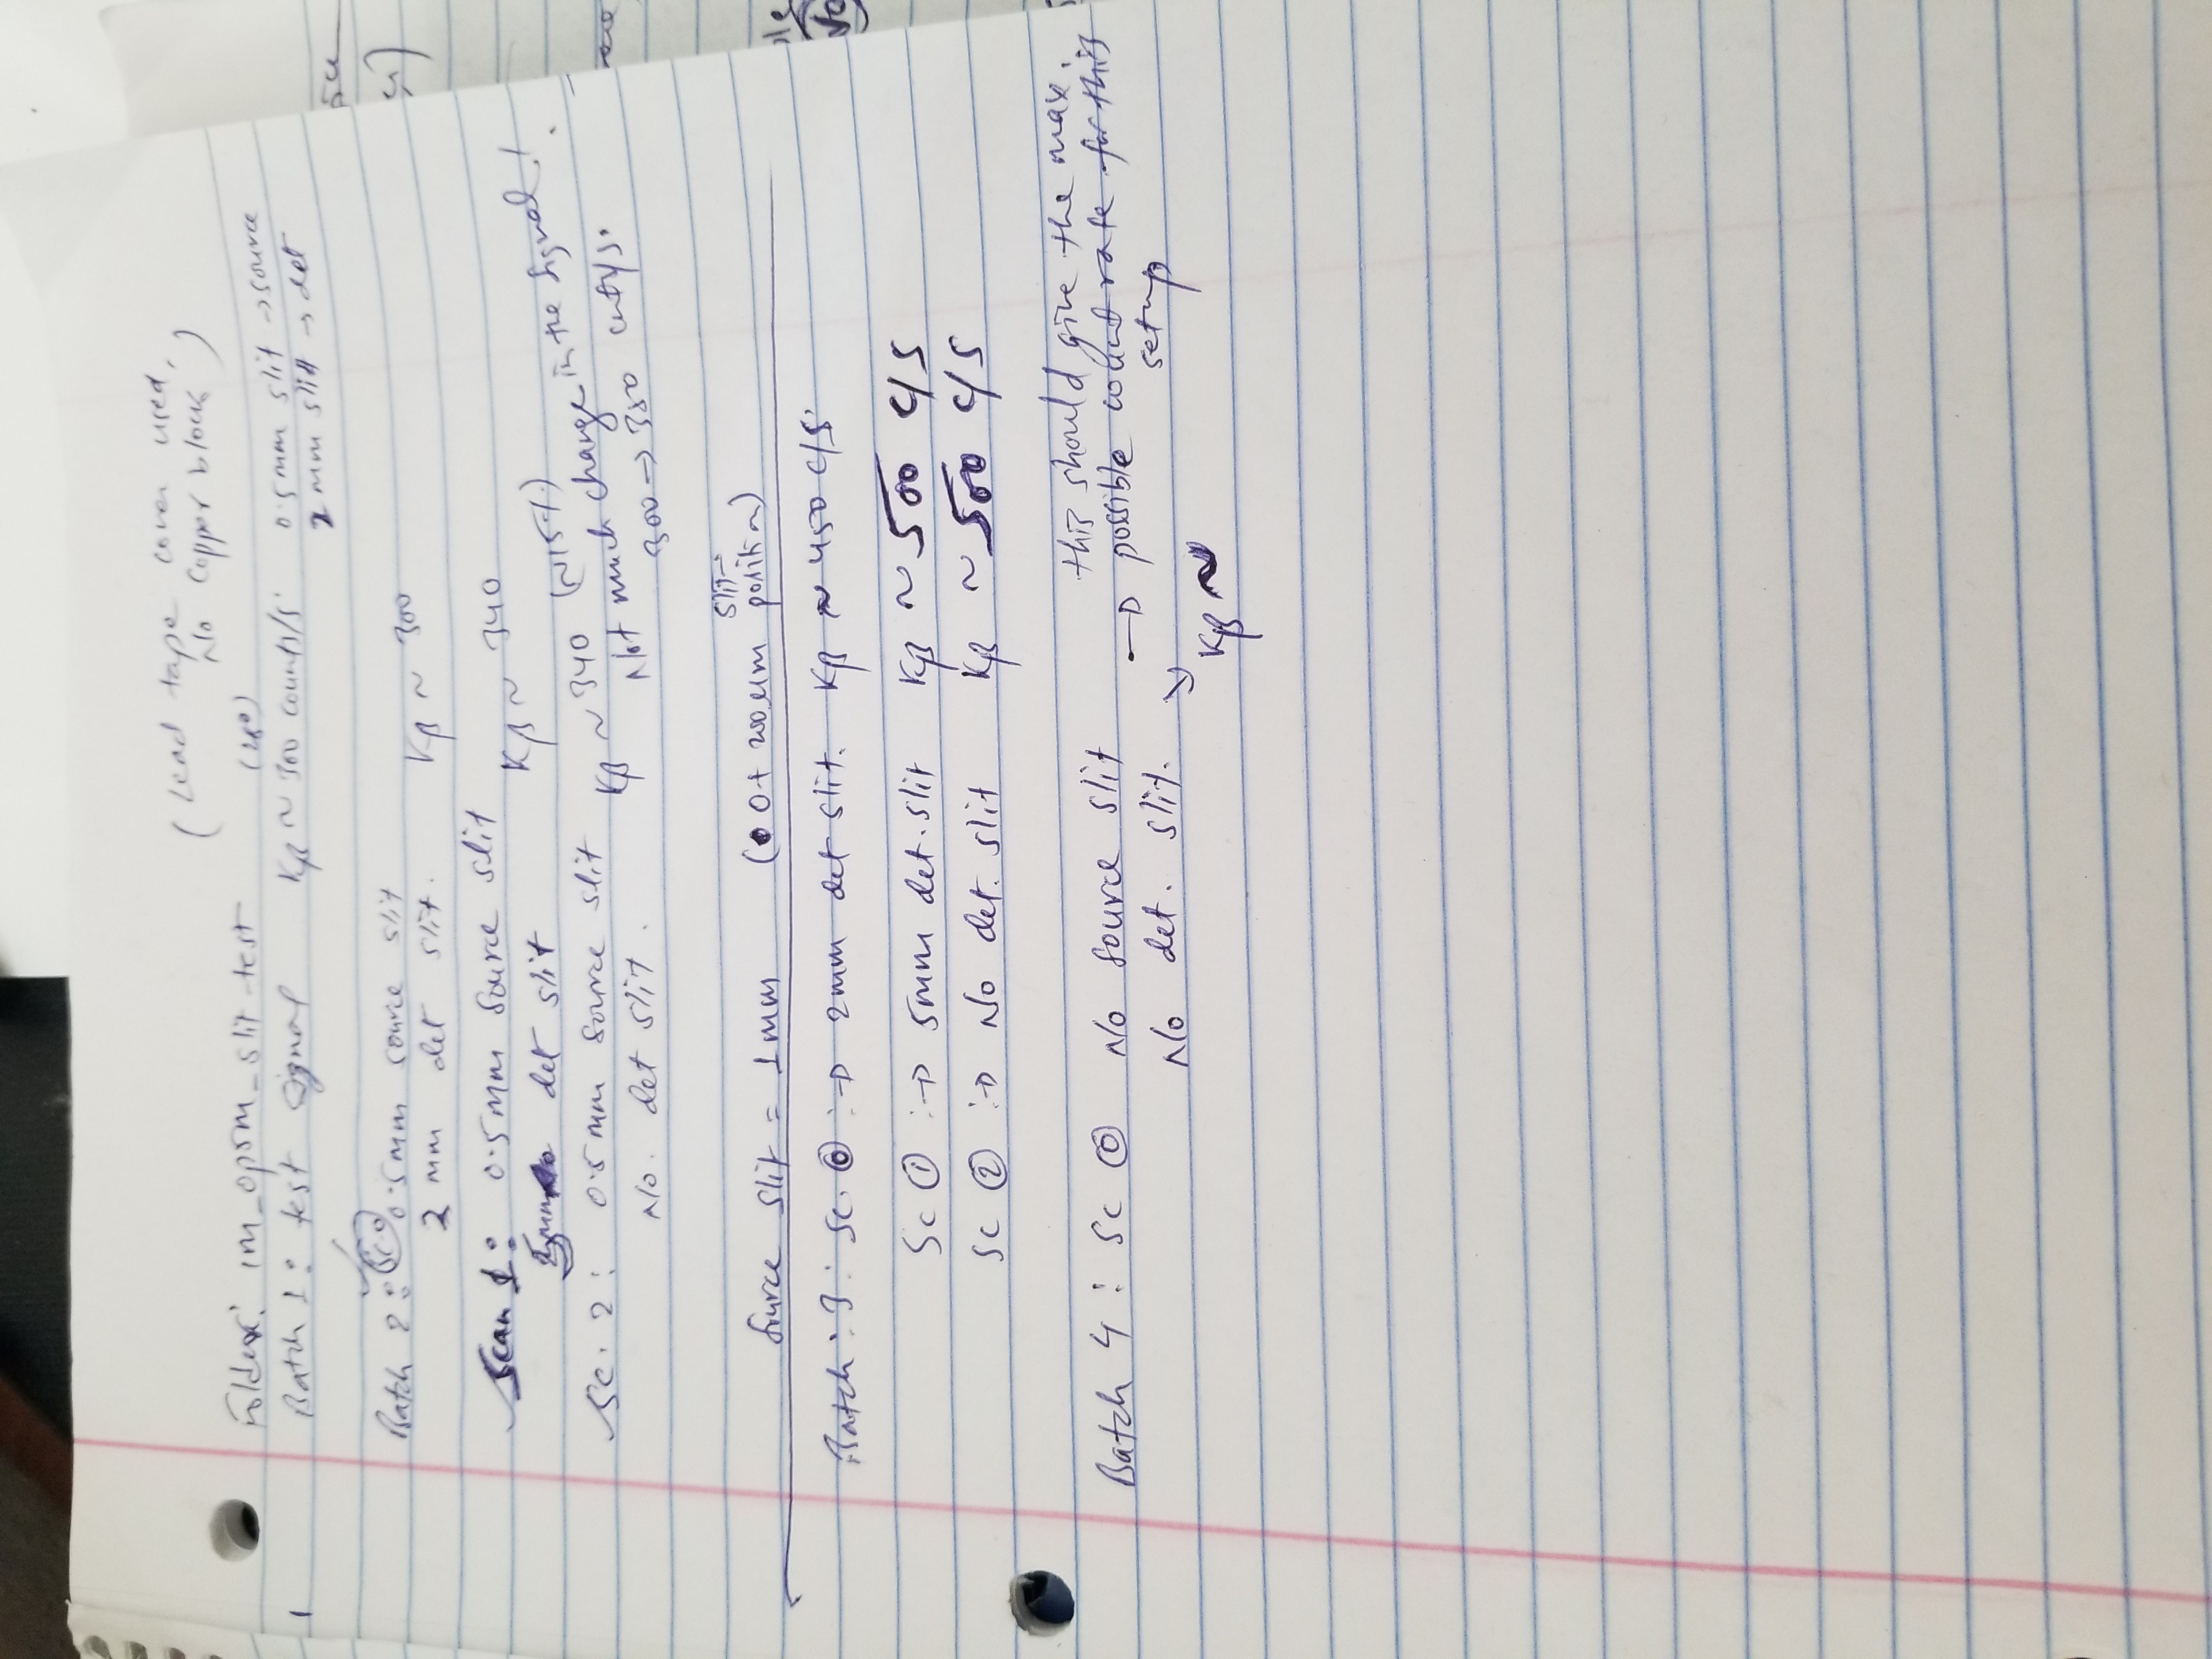 (Lead tape cover used,
No Copper block)
Folder: 1m_0p5m_slit-test
Batch 1: test signal Kβ ~ 300 counts/s. 0.5mm slit → source
2 mm slit → det
1
Batch 2: Sc.0 0.5mm source slit
2 mm det slit. Kβ ~ 300
Scan 1: 0.5mm source slit
5mm det slit Kβ ~ 340
Sc. 2: 0.5mm source slit Kβ ~ 340 (~15%)
No. det slit. Not much change in the signal!
300 → 380 cnt/s.
slit
Source slit = 1mm (0+200um position)
Batch: 3: Sc. 0 :→ 2mm det slit. Kβ ≈ 450 c/s
Sc 1 :→ 5mm det. slit Kβ ~ 500 c/s
Sc 2 :→ No det. slit Kβ ~ 500 c/s
Batch 4: Sc 0 No source slit
No det. slit.
this should give the max.
→ possible count rate for this
setup
Kβ ~